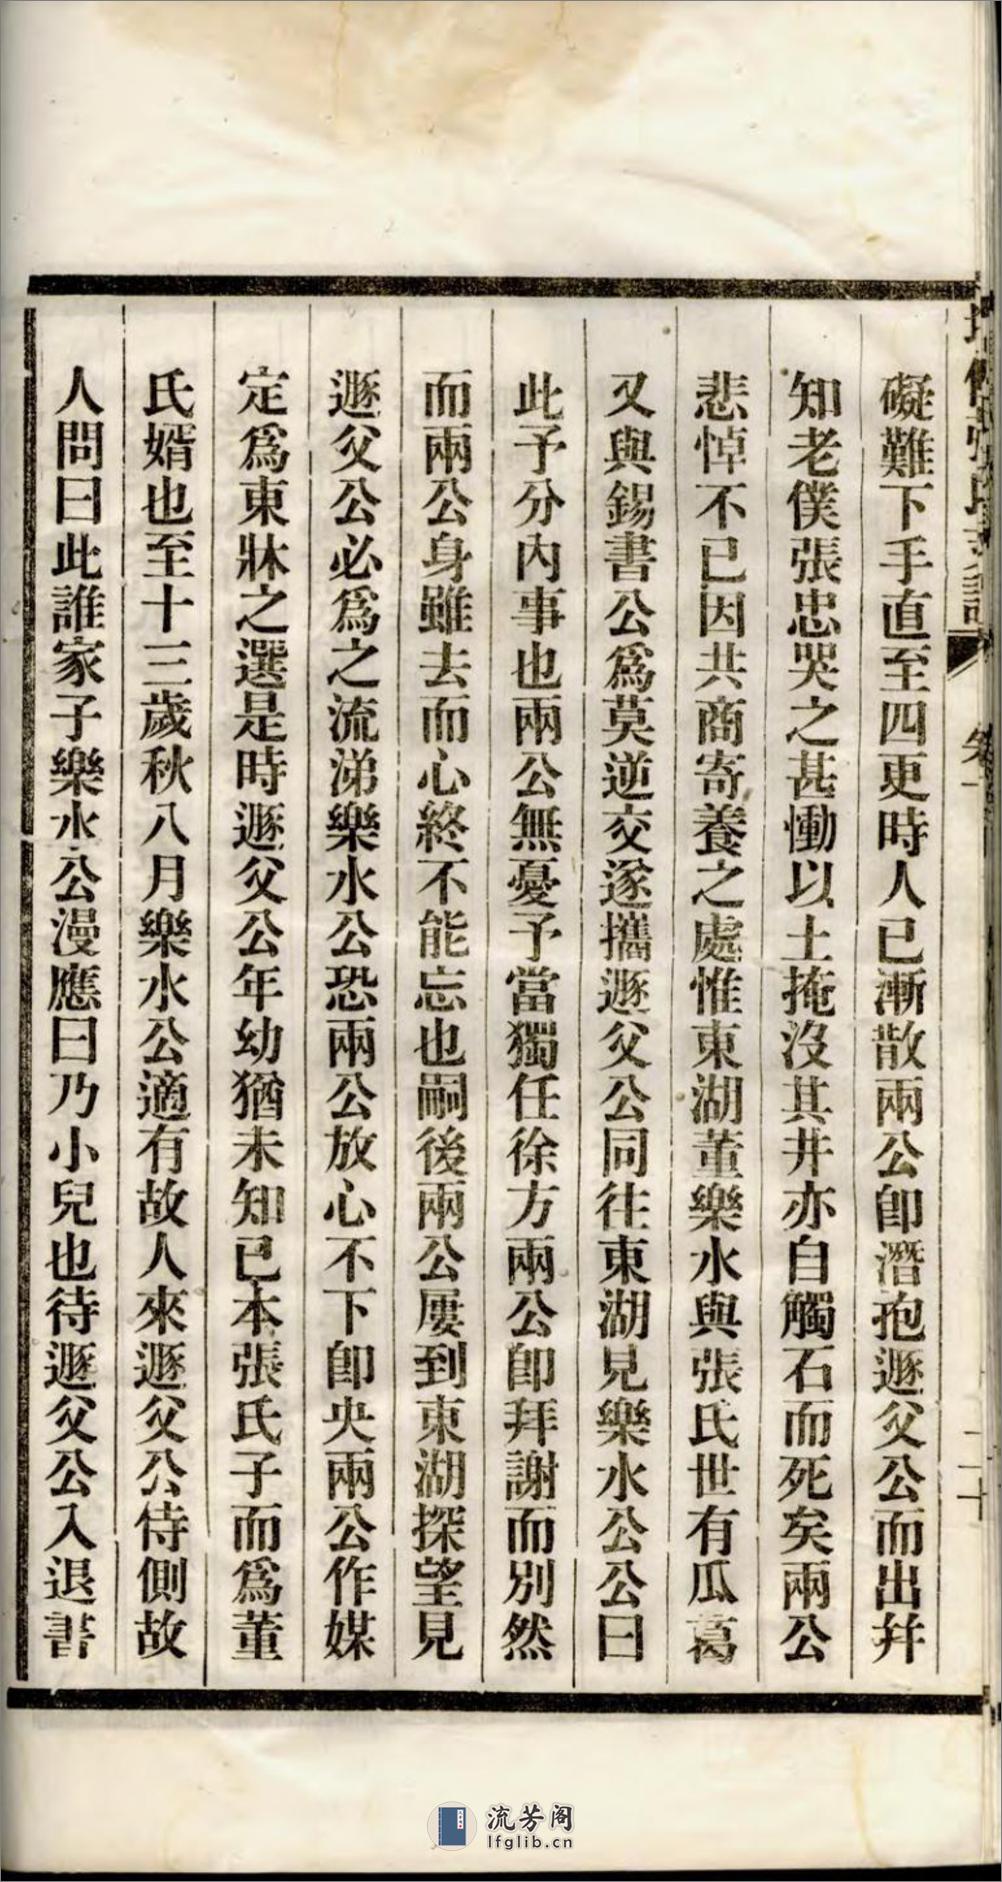 礙難下手直至四更時人已漸散兩公卽潛抱遯父公而出幷
知老僕張忠哭之甚慟以土掩沒其井亦自觸石而死矣兩公
悲悼不已因共商寄養之處惟東湖董樂水與張氏世有瓜葛
又與錫書公爲莫逆交遂攜遯父公同往東湖見樂水公公曰
此予分內事也兩公無憂予當獨任徐方兩公卽拜謝而別然
而兩公身雖去而心終不能忘也嗣後兩公屢到東湖探望見
遯父公必爲之流涕樂水公恐兩公放心不下卽央兩公作媒
定爲東牀之選是時遯父公年幼猶未知已本張氏子而爲董
氏婿也至十三歲秋八月樂水公適有故人來遯父公侍側故
人問曰此誰家子樂水公漫應曰乃小兒也待遯父公入退書
流芳阁
lfglib.cn